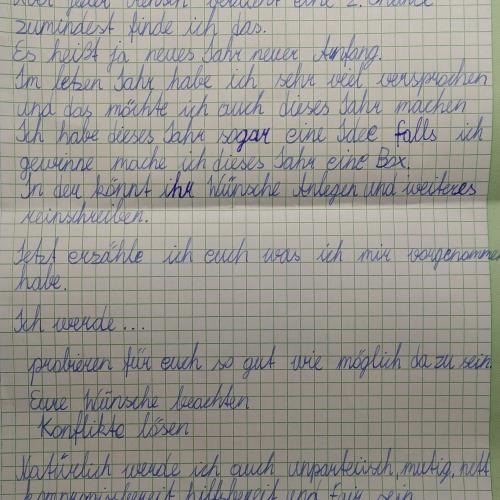 Aber jeder Mensch verdient eine 2. Chance
zumindest finde ich das.
Es heißt ja neues Jahr neuer Anfang.
Im letzen Jahr habe ich sehr viel versprochen
und das möchte ich auch dieses Jahr machen
Ich habe dieses Jahr sogar eine Idee falls ich
gewinne mache ich dieses Jahr eine Box.
In der könnt ihr Wünsche Anlegen und weiteres
reinschreiben.
Jetzt erzähle ich euch was ich mir vorgenommen
habe.
Ich werde...
probieren für euch so gut wie möglich da zu sein.
Eure Wünsche beachten
Konflikte lösen
Natürlich werde ich auch unparteiisch, mutig, nett
kompromissbereit hilfsbereit und fair sein